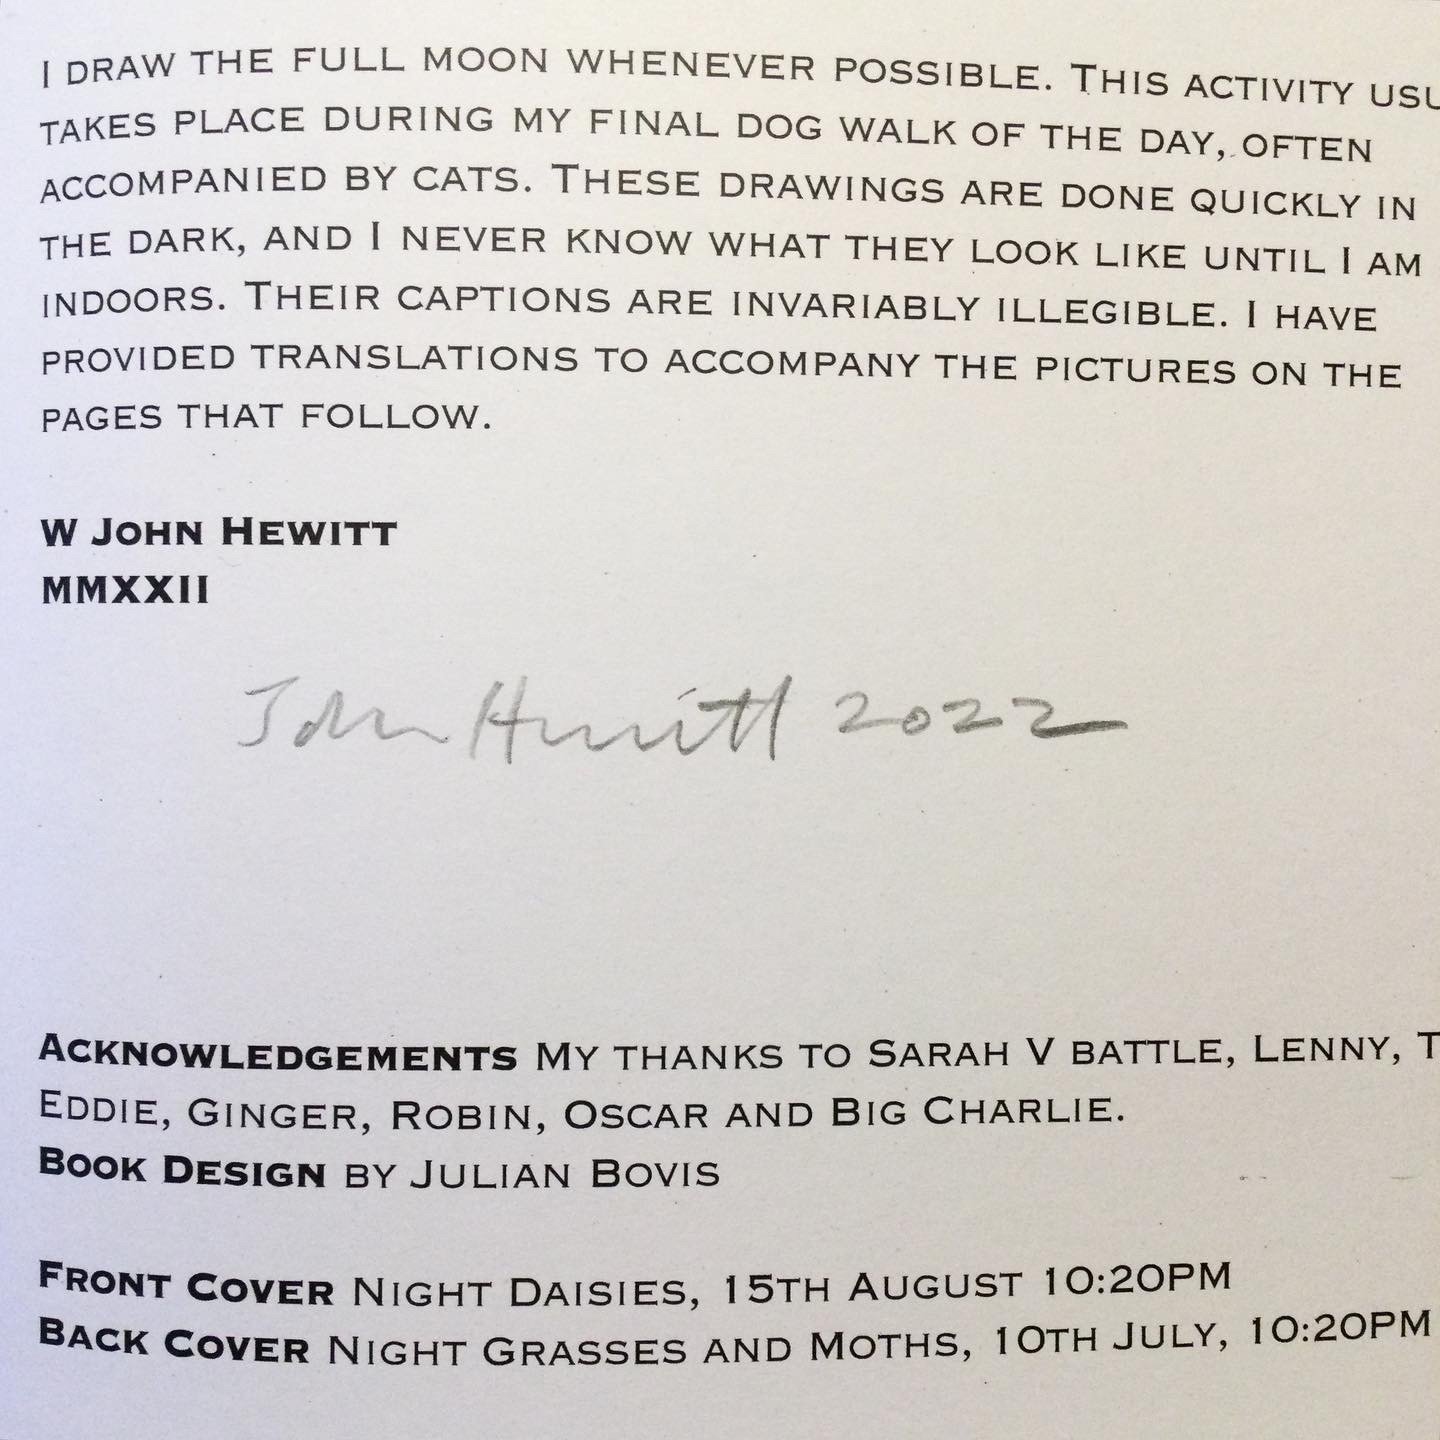 I DRAW THE FULL MOON WHENEVER POSSIBLE. THIS ACTIVITY
TAKES PLACE DURING MY FINAL DOG WALK OF THE DAY, OFTEN
ACCOMPANIED BY CATS. THESE DRAWINGS ARE DONE QUICKLY IN
THE DARK, AND I NEVER KNOW WHAT THEY LOOK LIKE UNTIL I AM
INDOORS. THEIR CAPTIONS ARE INVARIABLY ILLEGIBLE. I HAVE
PROVIDED TRANSLATIONS TO ACCOMPANY THE PICTURES ON THE
PAGES THAT FOLLOW.
W JOHN HEWITT
MMXXII
John Hewitt 2022
ACKNOWLEDGEMENTS MY THANKS TO SARAH V BATTLE, LENNY,
EDDIE, GINGER, ROBIN, OSCAR AND BIG CHARLIE.
BOOK DESIGN BY JULIAN BOVIS
FRONT COVER NIGHT DAISIES, 15TH AUGUST 10:20PM
BACK COVER NIGHT GRASSES AND MOTHS, 10TH JULY, 10:20PM